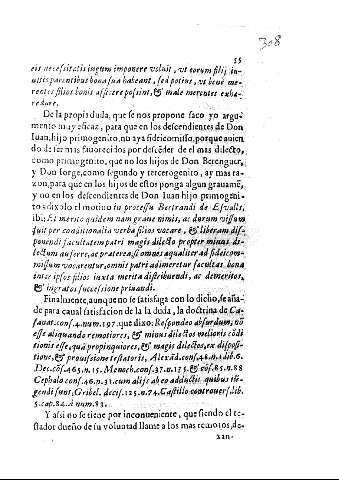 308
55
eis necessitatis iugum imponere voluit, vt eorum filij in-
uitis parentibus bona sua habeant, sed potius, vt bene me-
rentes filios bonis afficere possint, & male merentes exha-
redare.
De la propia duda, que se nos propone saco yo argu-
mento muy eficaz, para que en los descendientes de Don
Iuan, hijo primogenito, nu aya fideicomisso, porque auien
do de ser mas fauorecidos por descēder de el mas dilecto,
como primogenito, que no los hijos de Don Berenguer,
y Don Iorge, como segundo y tercerogenito, ay mas ra-
zon, para que en los hijos de estos ponga algun grauamē,
y no en los descendientes de Don Iuan hijo primogeni-
to:dixolo el motiuo in processu Bertrandi de Esualls,
ibi; Et merito quidem nam graue nimis, ac durum vissum
fuit per conditionalia verba filios vocare, & liberam dis-
ponendi facultatem patri magis dilecto propter minus di-
lectum auferre, ac præterea, si omnes æqualiter ad fideicom-
missum vocarentur, omnis patri adimeretur facultas bona
inter ipsos filios iuxta merita distribuendi, ac demeritos,
& ingratos successione priuandi.
Finalmente, aunque no se satisfaga con lo dicho, se aña-
de para caual satisfacion de la la duda, la doctrina de Ca-
sanat.conf.4.num.197. que dixo: Respondeo absurdum, no
esse aliquando remotiores, & minus dilectos melioris cōdi
tionis esse, quā propinquiores, & magis dilectos, ex disposi-
tione, & prouissione testatoris, Alexād. conf.46.n.1.lib.6.
Dec.cōs.465.n.15. Menoch.conf.37.n.135. & cōs.85.n.88
Cephalo conf.46.n.31. cum alijs ab eo adductis quibus iū-
gendi sunt, Gribel. decis.125.n.74. Castillo controuers.lib.
5.cap.84. à num.83.
Y assi no se tiene por inconueniente, que siendo el te-
stador dueño de su voluntad llame a los mas remotos, de-
xan-